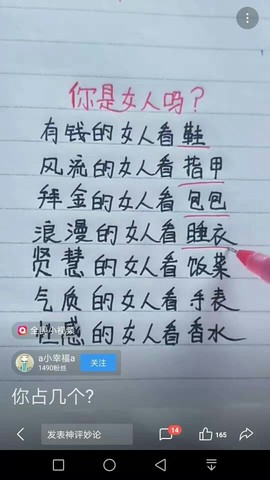 你是女人吗？
有钱的女人看鞋
风流的女人看指甲
拜金的女人看包包
浪漫的女人看睡衣
贤慧的女人看饭菜
气质的女人看手表
性感的女人看香水
全民小视频
a小幸福a
1490粉丝
关注
你占几个?
发表神评妙论
14
165